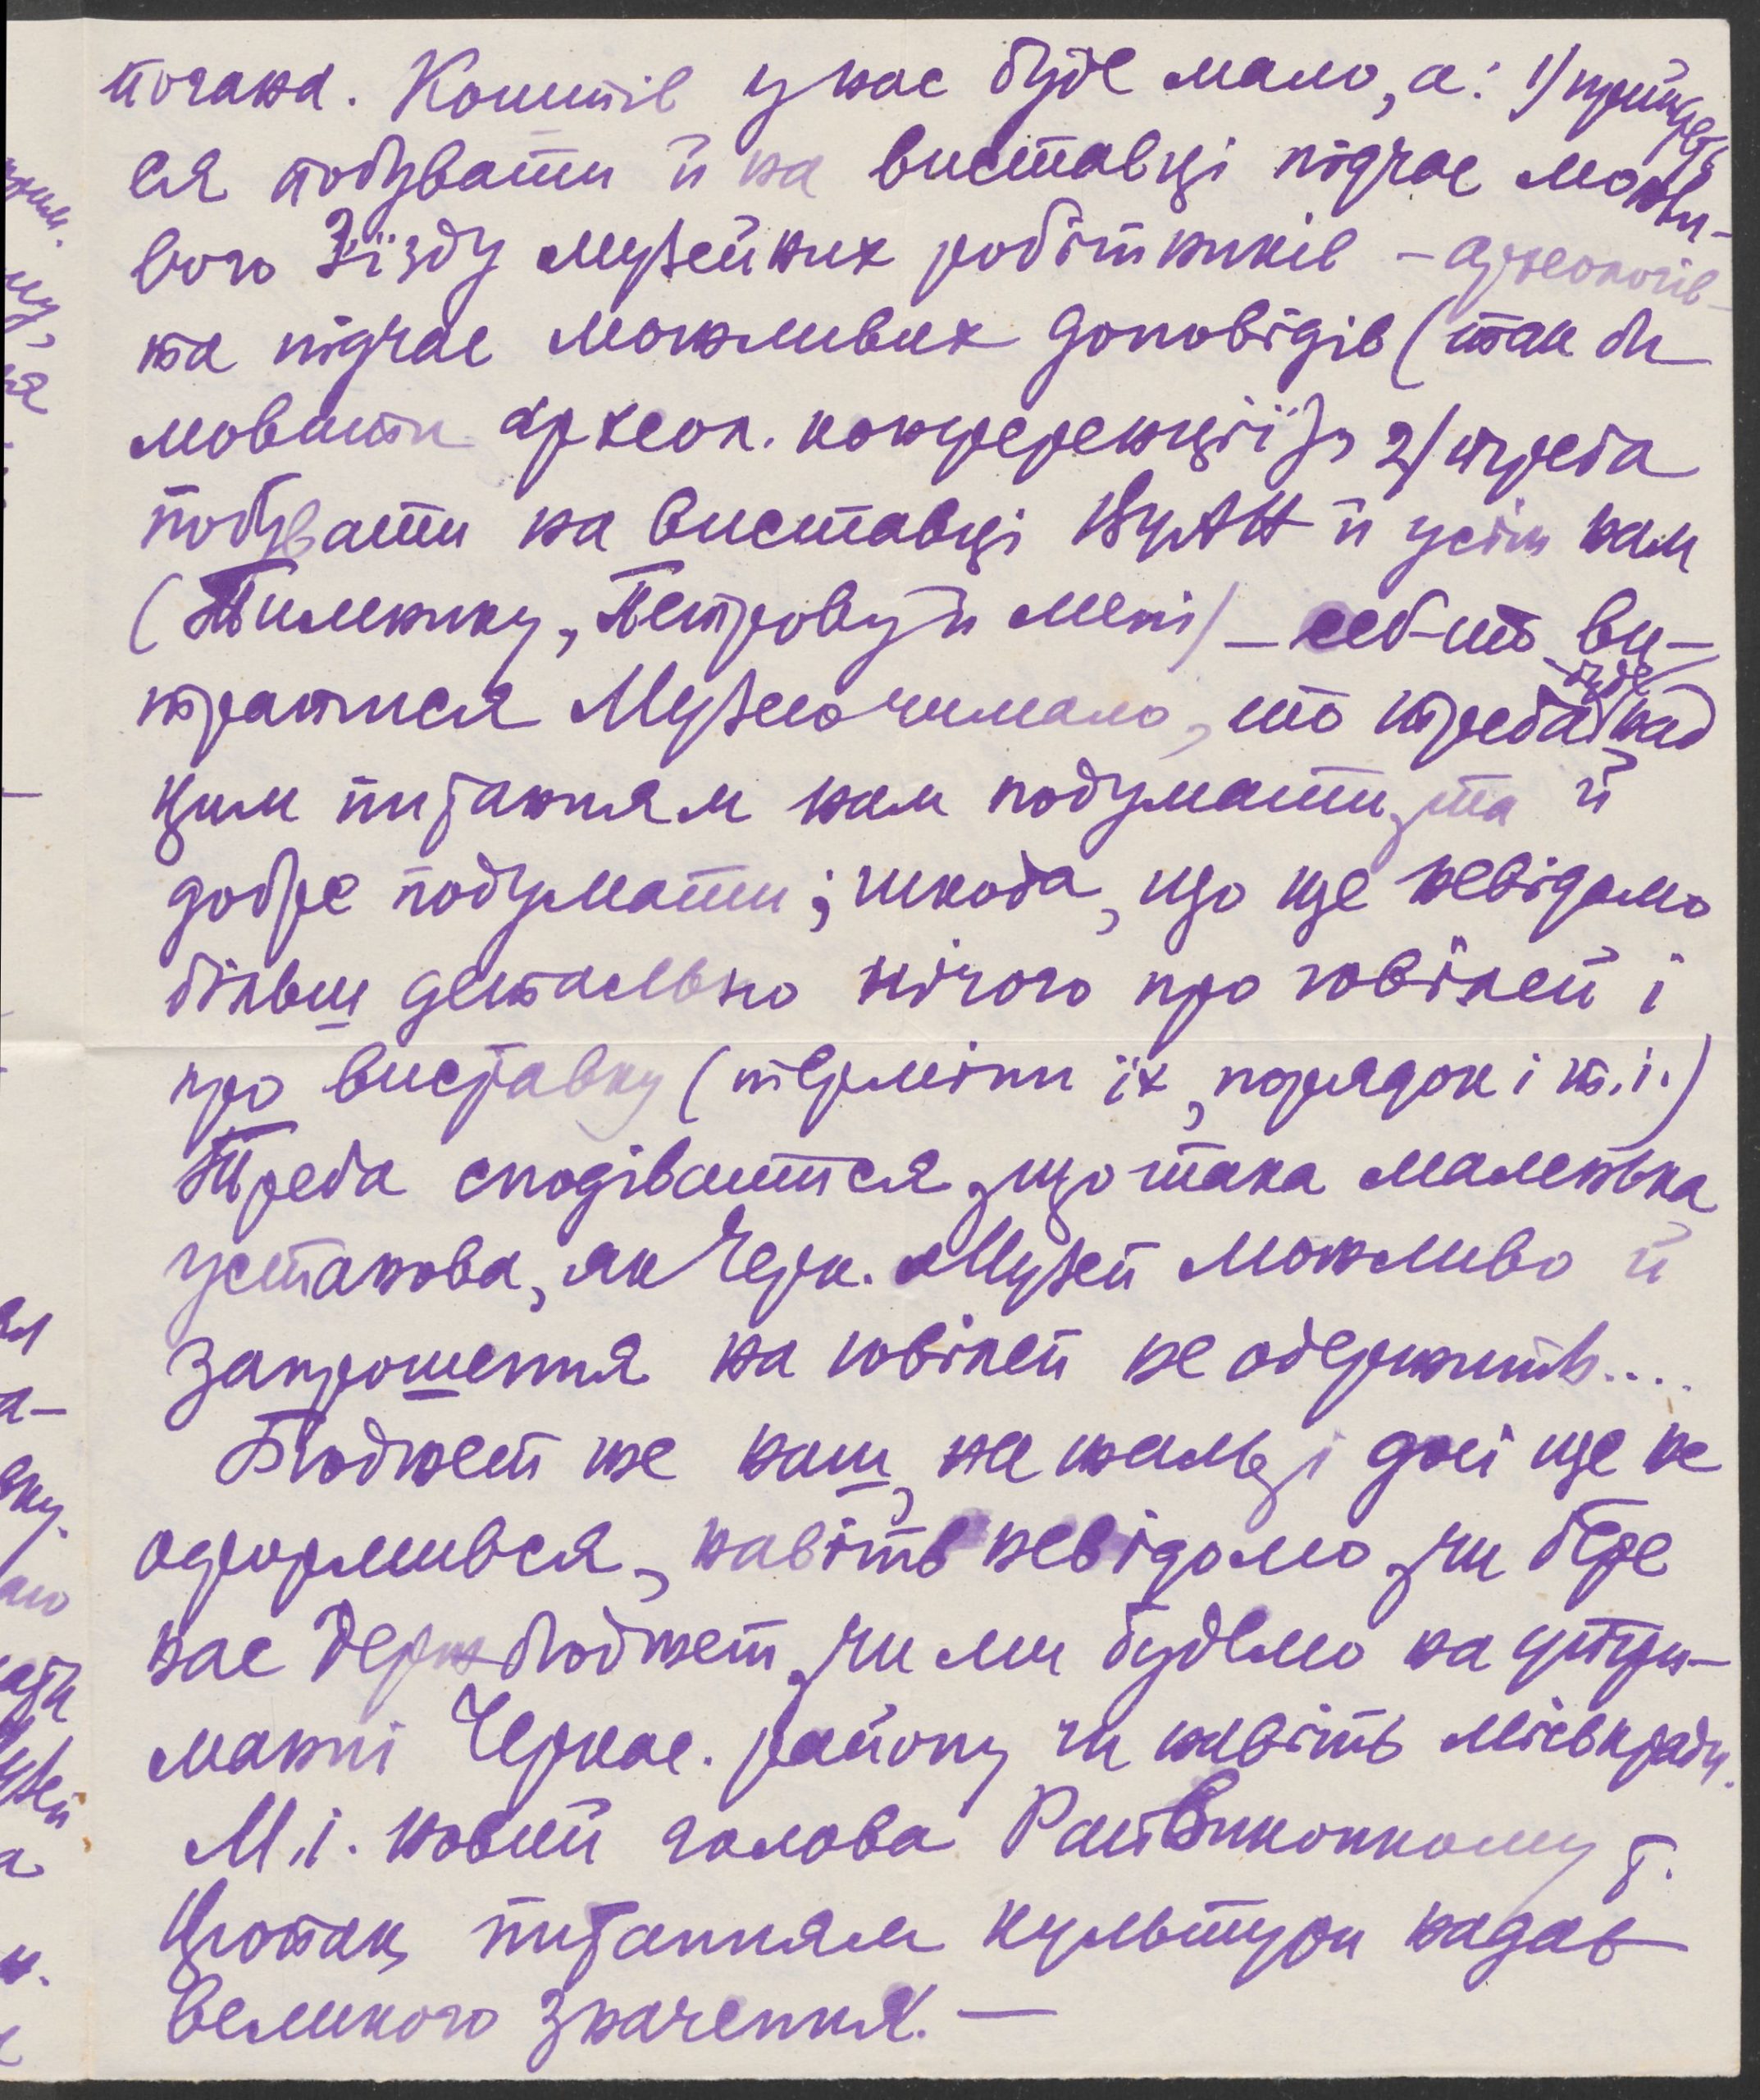 погана. Коштів у нас буде мало, а: 1) прийдеть-
ся побувати й на виставці підчас можли-
вого З'їзду музейних робітників – археологів –
та підчас можливих доповідів (так би
мовити археол. конференції), 2) треба
побувати на виставці ВУАН й усім нам
(Тименку, Петрову й мені) – себ-то ви-
тратися Музею чимало, то треба буде над
цим питанням нам подумати, та й
добре подумати; шкода, що ще невідомо
більш детально нічого про ювілей і
про виставку (терміни їх, порядок і т.і.)
Треба сподіватися, що така маленька
установа, як Черк. Музей можливо й
запрошення на ювілей не одержить....
Бюджет же наш, на жаль, і досі ще не
оформився, навіть невідомо, чи бере
нас Держбюджет, чи ми будемо на утри-
манні Черкас. району чи навіть міськради.
М.і. новий голова Райвиконкому т.
питанням культури надає
великого значення. —